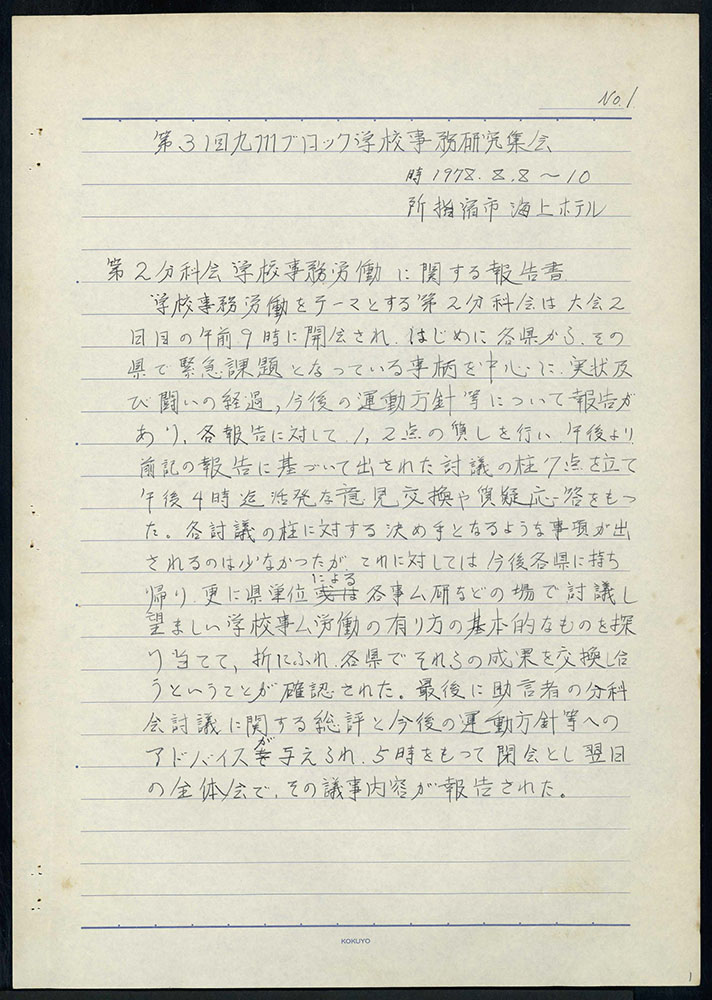 No.1
第31回九州ブロック学校事務研究集会
時 1978.8.8～10
所 指宿市 海上ホテル
第2分科会 学校事務労働に関する報告書
学校事務労働をテーマとする第2分科会は大会2
日目の午前9時に開会され、はじめに各県から、その
県で緊急課題となっている事柄を中心に、実状及
び闘いの経過,今後の運動方針等について報告が
あり、各報告に対して、1,2点の質しを行い、午後より
前記の報告に基づいて出された討議の柱7点を立て
午後4時迄活発な意見交換や質疑応答をもっ
た。各討議の柱に対する決め手となるような事項が出
されるのは少なかったが、これに対しては今後各県に持ち
帰り、更に県単位による各事ム研などの場で討議し
望ましい学校事ム労働の有り方の基本的なものを探
り当てて、折にふれ、各県でそれらの成果を交換し合
うということが確認された。最後に助言者の分科
会討議に関する総評と今後の運動方針等への
アドバイスが与えられ、5時をもって閉会とし翌日
の全体会で、その議事内容が報告された。
KOKUYO
1